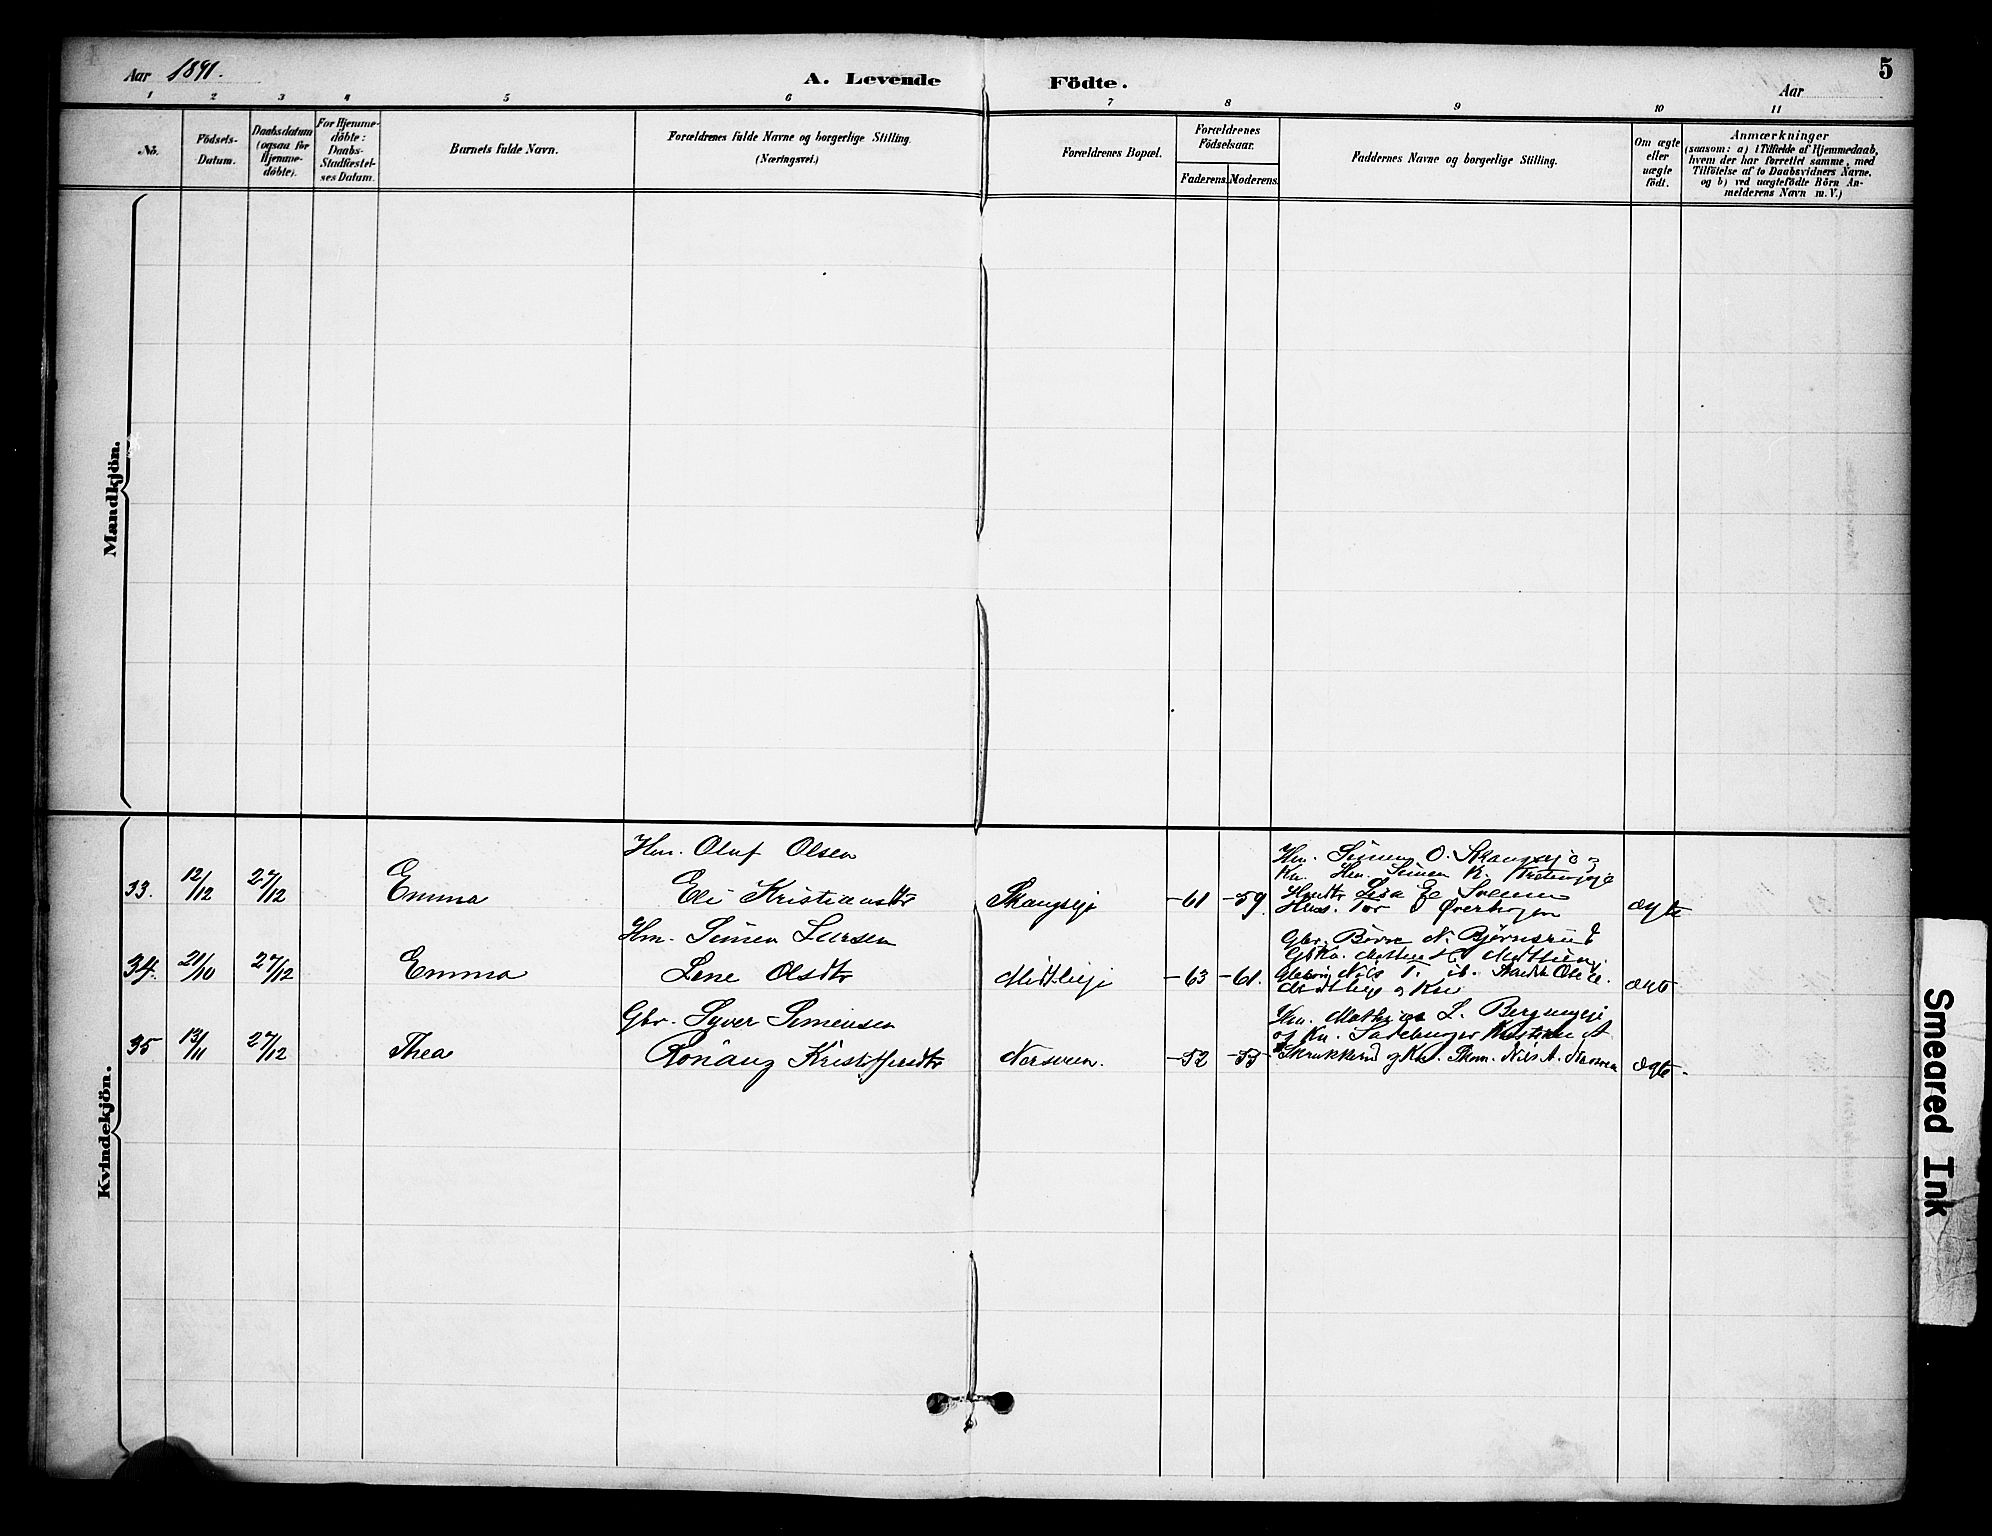 Aar 1891.
A. Levende Födte.
Aar
5
1 2 3 4 5 6 7 8 9 10 11
No.
Födsels-
Datum.
Daabsdatum
(ogsaa for
Hjemme-
döbte).
For Hjemme-
döbte:
Daabs-
Stadfæstel-
ses Datum.
Barnets fulde Navn.
Forældrenes fulde Navne og borgerlige Stilling.
(Næringsvei.)
Forældrenes Bopæl.
Forældrenes
Födselsaar.
Faderens. Moderens.
Faddernes Navne og borgerlige Stilling.
Om ægte
eller
uægte
födt.
Anmærkninger
(saasom: a) i Tilfælde af Hjemmedaab,
hvem der har forrettet samme, med
Tilföielse af to Daabsvidners Navne,
og b) ved uægtefödte Börn An-
melderens Navn m. V.)
Mandkjön.
Kvindekjön.
33. 12/12 27/12 Emma
Hm. Oluf Olsen
Eli Kristiansdtr
Skangseje -61 -59
Hm. Simen O. Skangseje og
Kn. Hm. Simen K.
ægte
34. 20/10 27/12 Emma
Hm. Simen Larsen
Lene Olsdtr
-63 -61.
Gbr. N. Bjørnsrud
ægte
35 13/11 27/12 Thea
Gbr. Syver Simensen
Rönaug Kristoffersdtr
Narsveen. -52 -53
Hm. Mathias L.
og Kn.
Skrukkerud og Kn. Nils A. Narsveen
ægte.
Smeared Ink